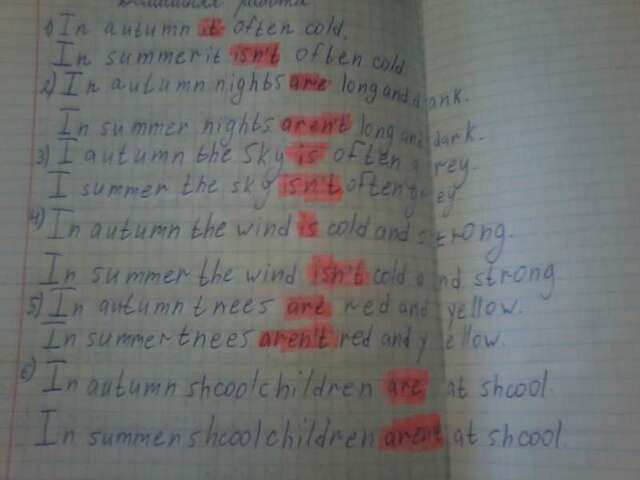 Домашняя работа
1) In autumn it often cold.
In summer it isn't often cold
2) In autumn nights are long and drank.
In summer nights aren't long and dark.
3) I autumn the sky is often grey.
I summer the sky isn't often grey
4) In autumn the wind is cold and strong.
In summer the wind isn't cold and strong
5) In autumn tnees are red and yellow.
In summer tnees aren't red and yellow.
6) In autumn shcoolchildren are at shcool.
In summen shcoolchildren aren't at shcool.